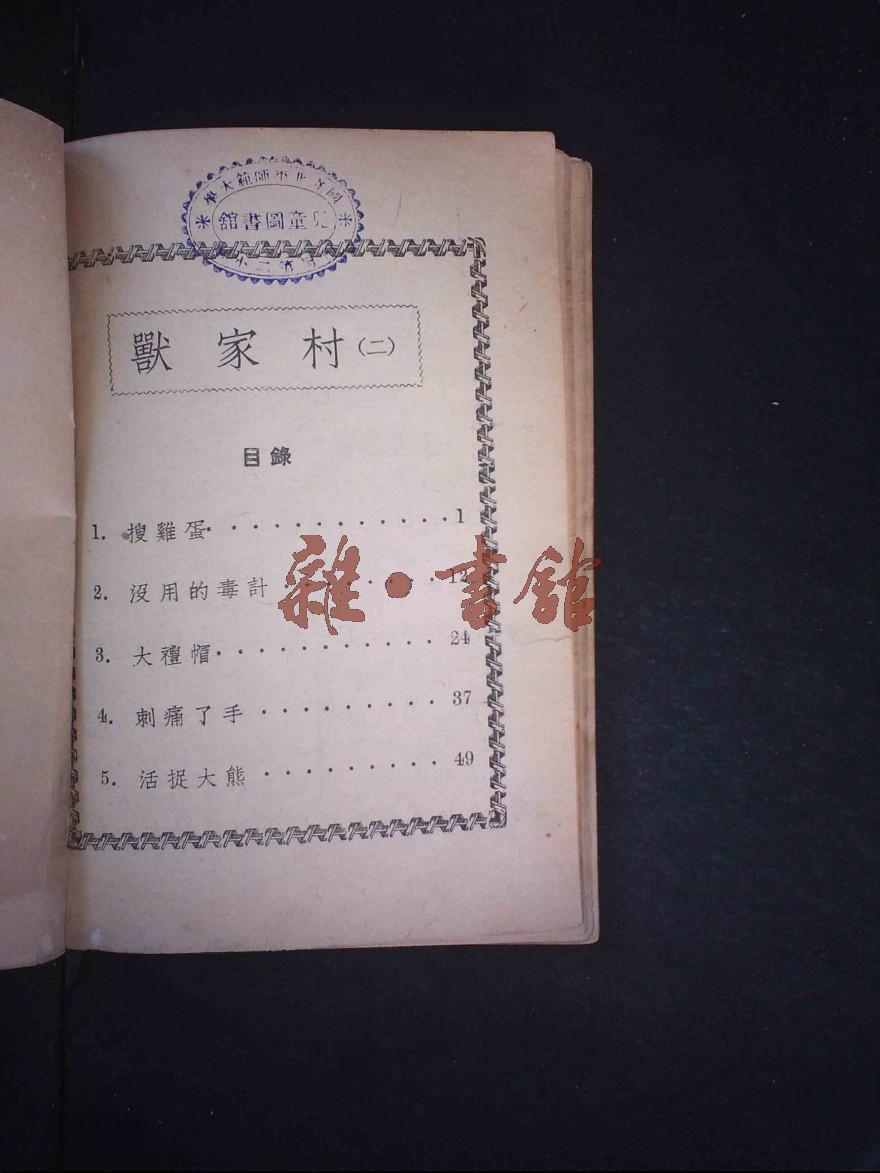 國立北平師範大學
兒童圖書館
獸家村(二)
目錄
1. 搜雞蛋 · · · · · · · · · · · 1
2. 沒用的毒計 · · · · · · · · 12
3. 大禮帽 · · · · · · · · · · · 24
4. 刺痛了手 · · · · · · · · · 37
5. 活捉大熊 · · · · · · · · · 49
雜·書館